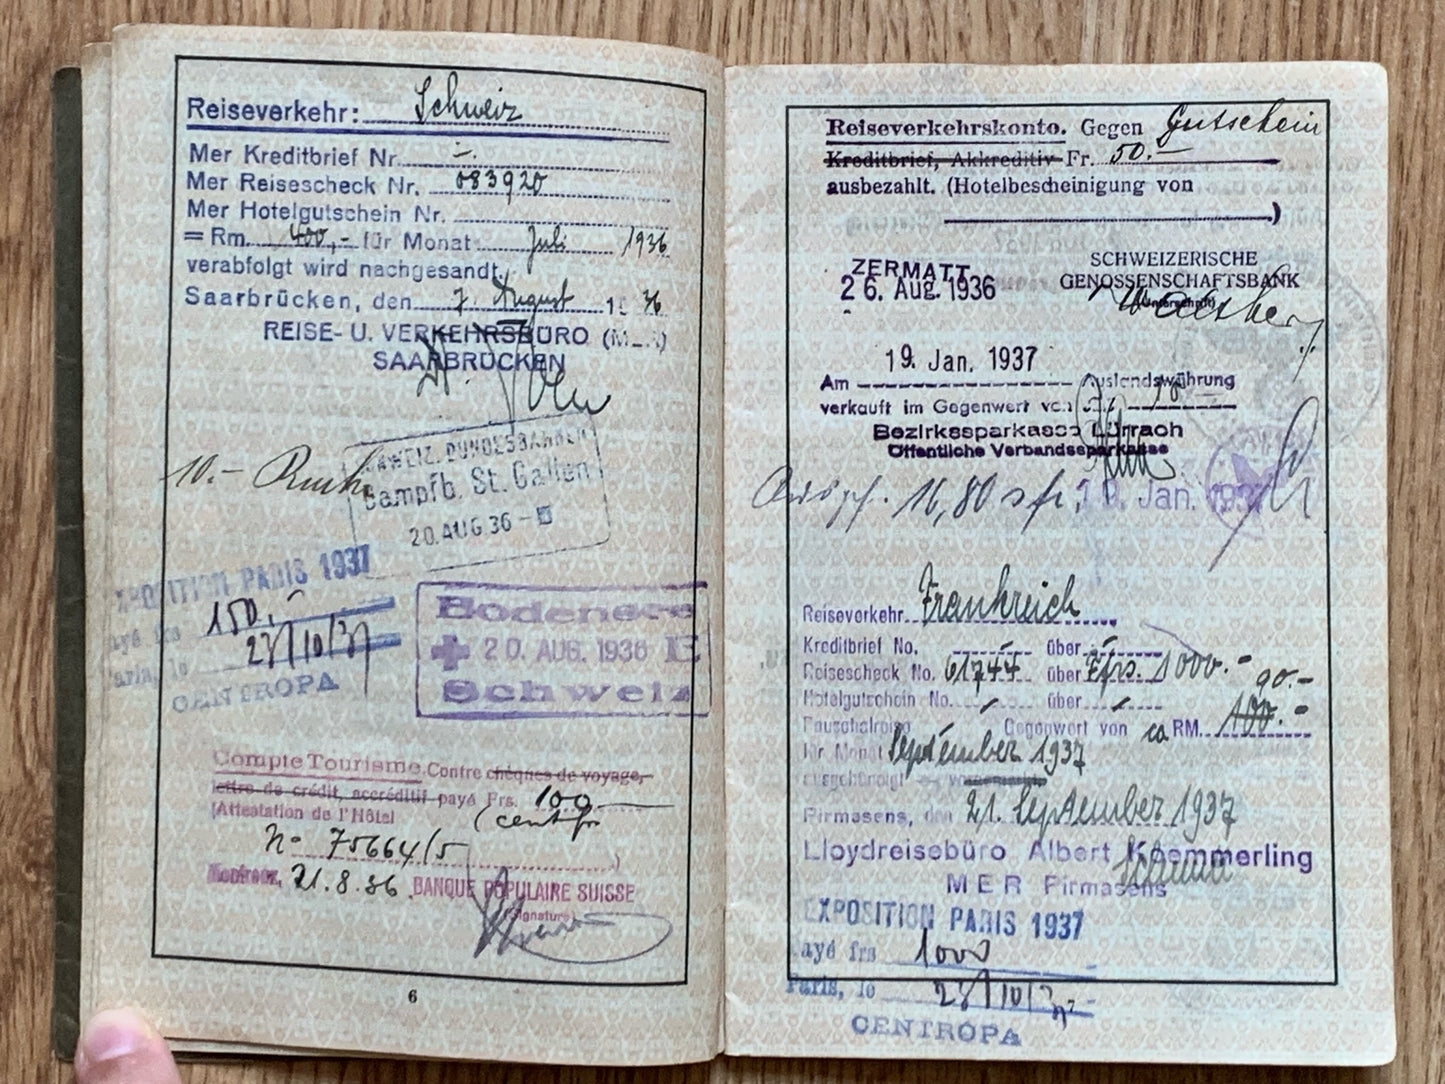 Reiseverkehr: Schweiz
Mer Kreditbrief Nr. -.
Mer Reisescheck Nr. 083920
Mer Hotelgutschein Nr.
= Rm. 400,- für Monat Juli 1936
verabfolgt wird nachgesandt.
Saarbrücken, den 7. August 1936
REISE- U. VERKEHRSBÜRO (MER)
SAARBRÜCKEN
10.-
SCHWEIZ. BUNDESBAHNEN
Dampfb. St. Gallen
20. AUG 36 -
EXPOSITION PARIS 1937
payé frs 150.-
Paris, le 28/10/37
CENTROPA
Bodensee
20. AUG. 1936 E
Schweiz
Compte Tourisme. Contre chèques de voyage,
lettre de crédit, accréditif payé Frs. 100
(Attestation de l'Hôtel
No 75664/5
)
Montreux, 21.8.36. BANQUE POPULAIRE SUISSE
(Signature)
6
Reiseverkehrskonto. Gegen Gutschein
Kreditbrief, Akkreditiv Fr. 50.-
ausbezahlt. (Hotelbescheinigung von
)
ZERMATT
26. Aug. 1936
SCHWEIZERISCHE
GENOSSENSCHAFTSBANK
(Unterschrift)
19. Jan. 1937
Am Auslandswährung
verkauft im Gegenwert von
Bezirkssparkasse Lörrach
Öffentliche Verbandssparkasse
16,80 sfr. 19. Jan. 1937
Reiseverkehr Frankreich
Kreditbrief No. - über -
Reisescheck No. 61744 über Ffrs. 1000.- 90.-
Hotelgutschein No. - über -
Pauschalreise - Gegenwert von ca RM. 100.-
für Monat September 1937
ausgehändigt
Pirmasens, den 21. September 1937
Lloydreisebüro Albert Kaemmerling
MER Pirmasens
EXPOSITION PARIS 1937
payé frs 1000
Paris, le 28/10/37
CENTROPA